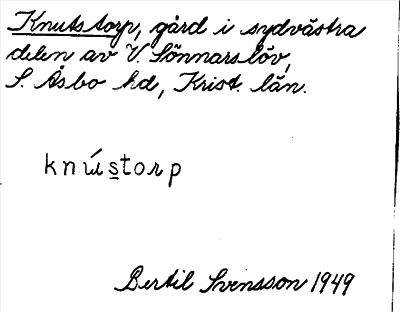 Knutstorp, gård i sydvästra
delen av V. Sönnarslöv,
S. Åsbo hd, Krist. län.
knús̲torp
Bertil Svensson 1949